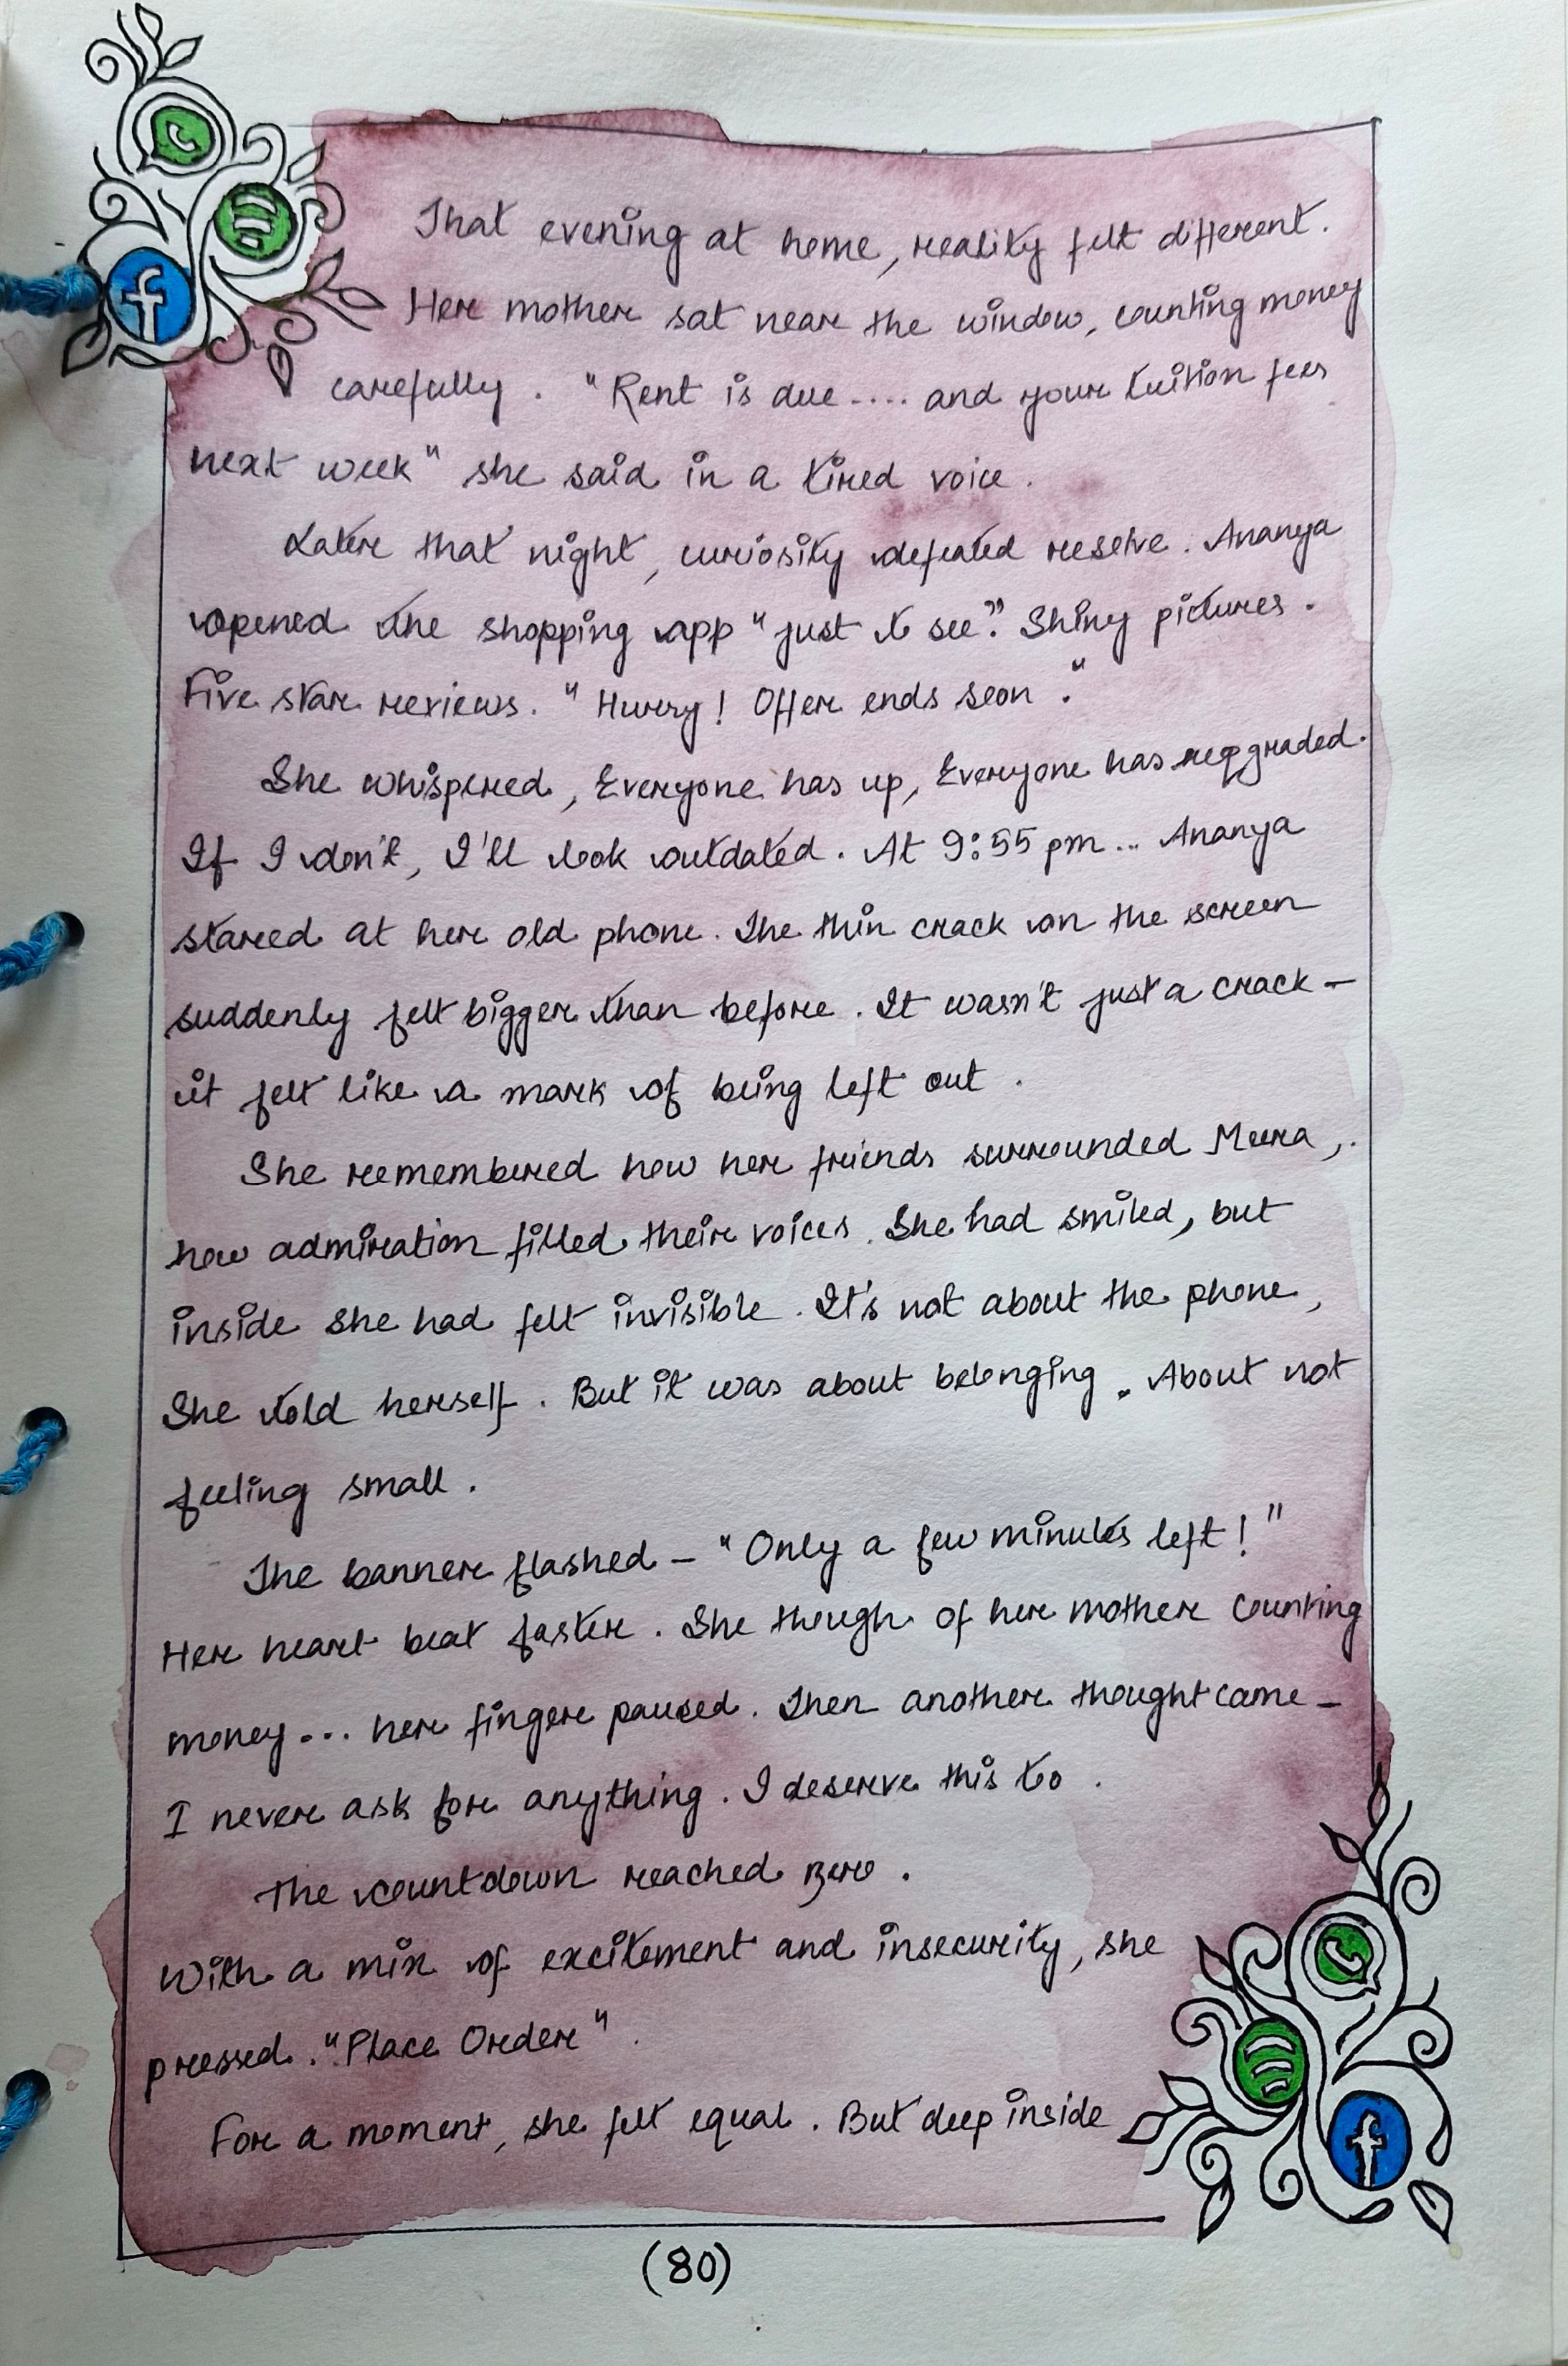 That evening at home, reality felt different.
Her mother sat near the window, counting money
carefully. "Rent is due.... and your tuition fees
next week" she said in a tired voice.
Later that night, curiosity defeated resolve. Ananya
opened the shopping app "just to see". Shiny pictures.
Five star reviews. "Hurry! Offer ends soon."
She whispered, Everyone has up, Everyone has
If I don't, I'll look outdated. At 9:55 pm... Ananya
stared at her old phone. The thin crack on the screen
suddenly felt bigger than before. It wasn't just a crack –
it felt like a mark of being left out.
She remembered how her friends surrounded Meera,.
how admiration filled their voices. She had smiled, but
inside she had felt invisible. It's not about the phone,
She told herself. But it was about belonging. About not
feeling small.
The banner flashed – "Only a few minutes left!"
Her heart beat faster. She though of her mother counting
money... her finger paused. Then another thought came –
I never ask for anything. I deserve this to.
The countdown reached zero.
With a mix of excitement and insecurity, she
pressed. "Place Order".
For a moment, she felt equal. But deep inside
(80)